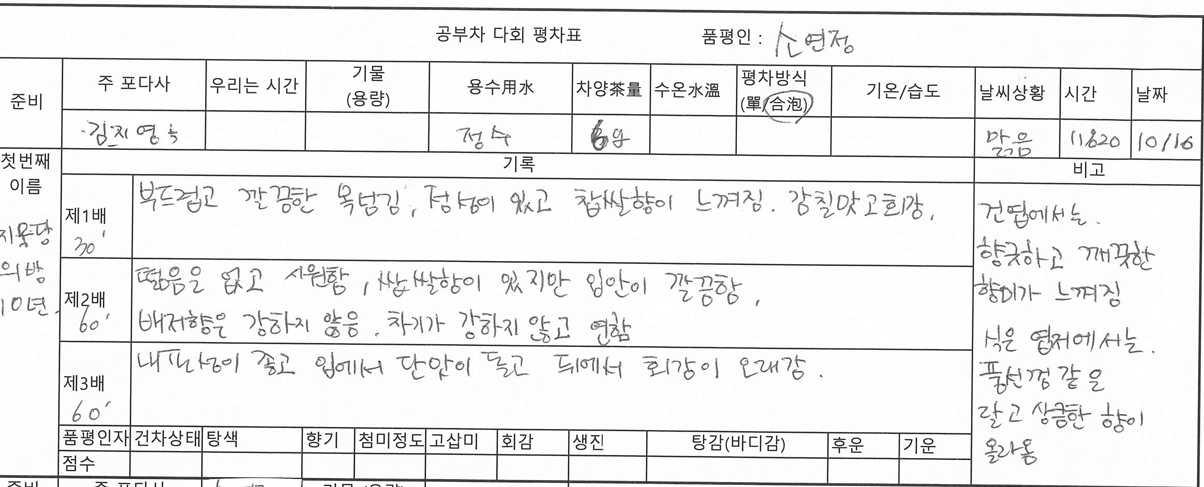 공부차 다회 평차표 품평인 : 소연정
준비 주 포다사 우리는 시간 기물 (용량) 용수用水 차양茶量 수온水溫 평차방식 (單/合泡) 기온/습도 날씨상황 시간 날짜
김지영 정수 6g 맑음 10/16
첫번째 이름 기록 비고
제1배 30' 부드럽고 깔끔한 목넘김, 점성이 있고 찹쌀향이 느껴짐. 감칠맛고회감.
제2배 60' 떫음은 없고 시원함, 쌉쌀향이 있지만 입안이 깔끔함,
배저향은 강하지 않음. 차기가 강하지 않고 연함
제3배 60' 내포성이 좋고 입에서 단맛이 돌고 뒤에서 회감이 오래감.
의방
10년.
건엽에서는.
향긋하고 깨끗한
향미가 느껴짐
식은 엽저에서는.
풍선껌 같은
달고 상큼한 향이
올라옴
품평인자 건차상태 탕색 향기 첨미정도 고삽미 회감 생진 탕감(바디감) 후운 기운
점수